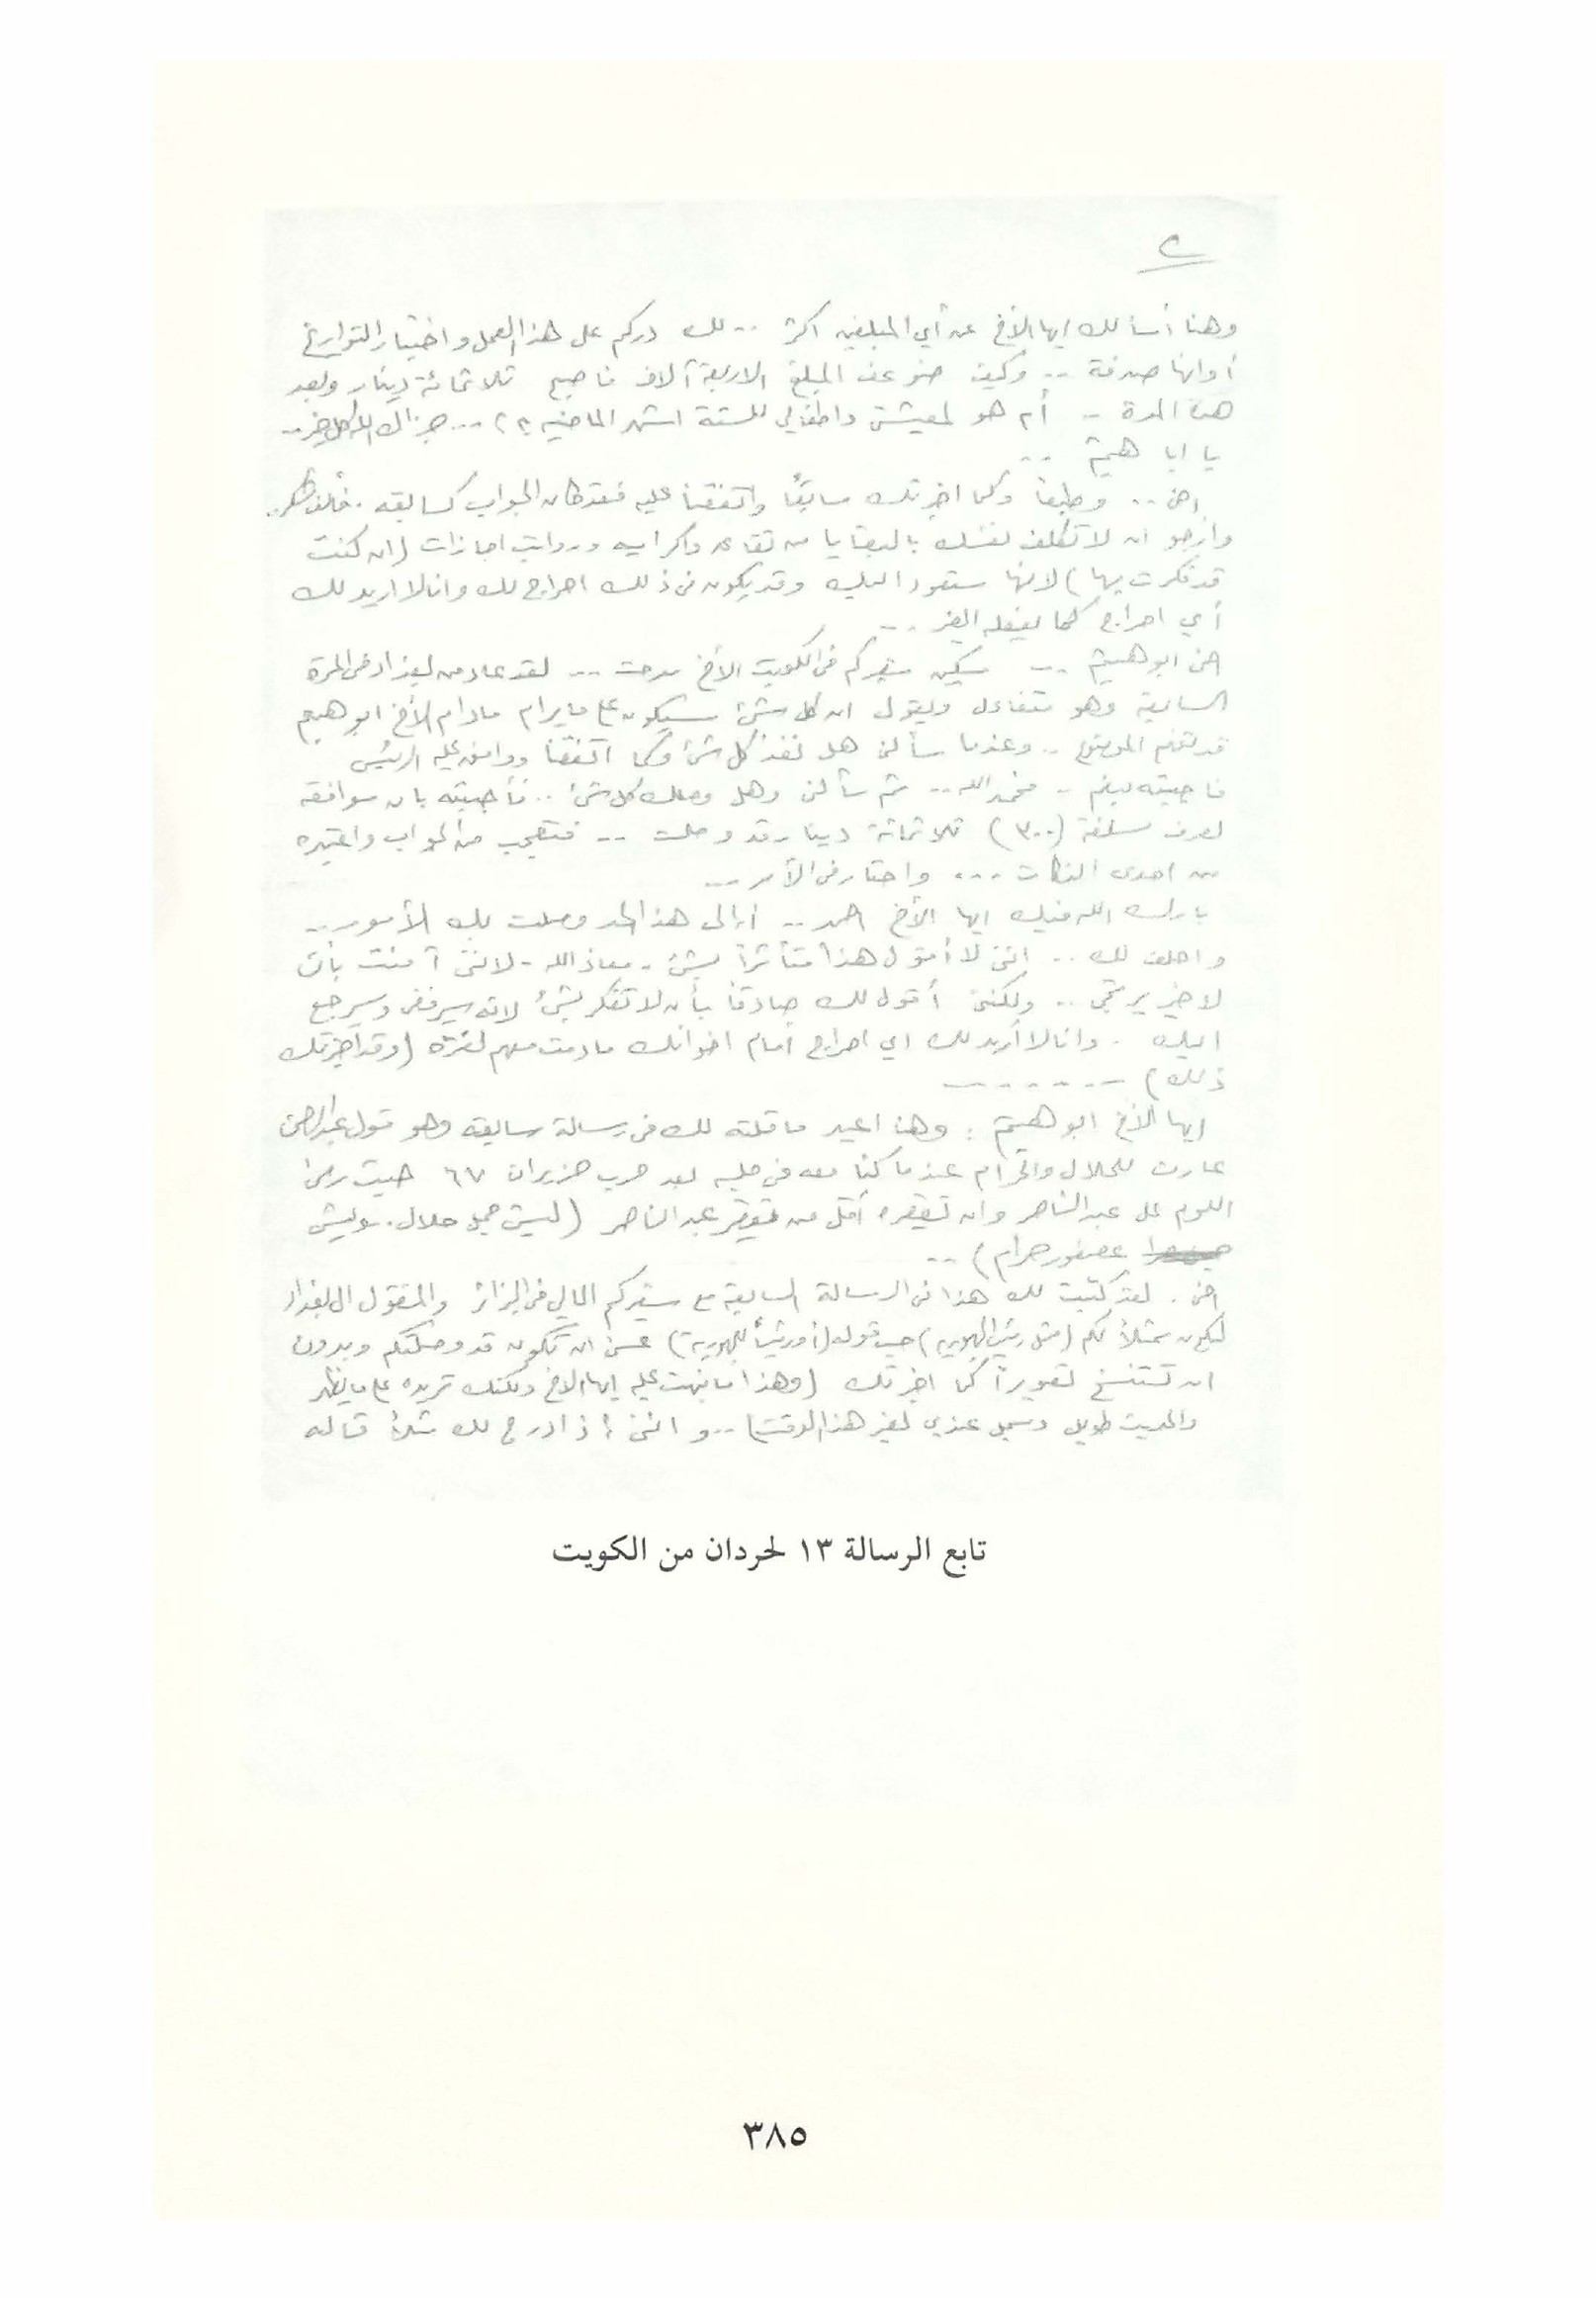 ٢
وهنا أسألك ايها الأخ عن أي المبلغين اكثر .. لله دركم على هذا العمل واختيار التواريخ
أو انها صدفة .. وكيف ضوعف المبلغ الاربعة آلاف فاصبح ثلاثمائة دينار وبعد
هذه المدة .. أم هو لمعيشتي واطفالي للستة اشهر الماضية ؟) ... جزاك الله كل خير ..
يا ابا هيثم ..
اخي .. وطبعاً وكما اخبرتك سابقاً واتفقنا عليه فقد كان الجواب كسابقه .
وارجو ان لا تكلف نفسك بالبقايا من تقاعد واكراميه ورواتب اجازات (ان كنت
قد فكرت بها) لانها ستعود اليك وقد يكون في ذلك احراج لك وانا لا اريد لك
أي احراج كما يفعله الغير ..
اخي ابو هيثم .. مسكين سفيركم في الكويت الأخ مدحت .. لقد عاد من بغداد في المرة
السابقة وهو متفائل ويقول ان كل شئ سيكون على ما يرام مادام الأخ ابو هيثم
قد تفهم الموضوع .. وعندما سألني هل نفذ كل شئ وكما اتفقنا ووافق عليه الرئيس
فاجبته بنعم .. فحمد الله .. ثم سألني وهل وصلك كل شئ .. فأجبته بان موافقة
لصرف سلفة (٣٠٠) ثلاثمائة دينار قد وصلت .. فتعجب من الجواب واعتبره
من احدى النكات ... واحتار في الأمر ...
بارك الله فيك ايها الأخ احمد .. أإلى هذا الحد وصلت بك الأمور ..
واحلف لك .. انني لا أقول هذا متأثراً بشئ - معاذ الله - لانني آمنت بأن
لا خير يرتجى .. ولكنني أقول لك صادقاً بأن لا تفكر بشئ لانه سيرفض وسيرجع
اليك . وانا لا أريد لك اي احراج امام اخوانك مادمت معهم لفترة (وقد أخبرتك
ذلك) ------
ايها الأخ ابو هيثم : وهنا اعيد ما قلته لك في رسالة سابقة وهو قول عبدالرحمن
عارف للحلال والحرام عندما كنا معه في جلسة بعد حرب حزيران ٦٧ حيث رمى
اللوم على عبد الناصر وان تقصيره أقل من تقصير عبد الناصر (ليش جمل حلال . وليش
عصفور حرام) ..
اخي . لقد كتبت لك هذا في الرسالة السابقة مع سفيركم الحالي في الجزائر والمنقول الى بغداد
ليكون ممثلاً لكم (مثل رئيس الجمهورية) حسب قوله (أو رئيساً للجمهورية) عسى ان تكون قد وصلتكم وبدون
ان تستنسخ تصويراً كما اخبرتك (وهذا ما نبهت عليه ايها الاخ ولكنك تريده على ما يظهر
والحديث طويل وسجل عندي لغير هذا الوقت) .. وانني إذ ادرج لك مثلاً قاله
تابع الرسالة ١٣ لحردان من الكويت
٣٨٥